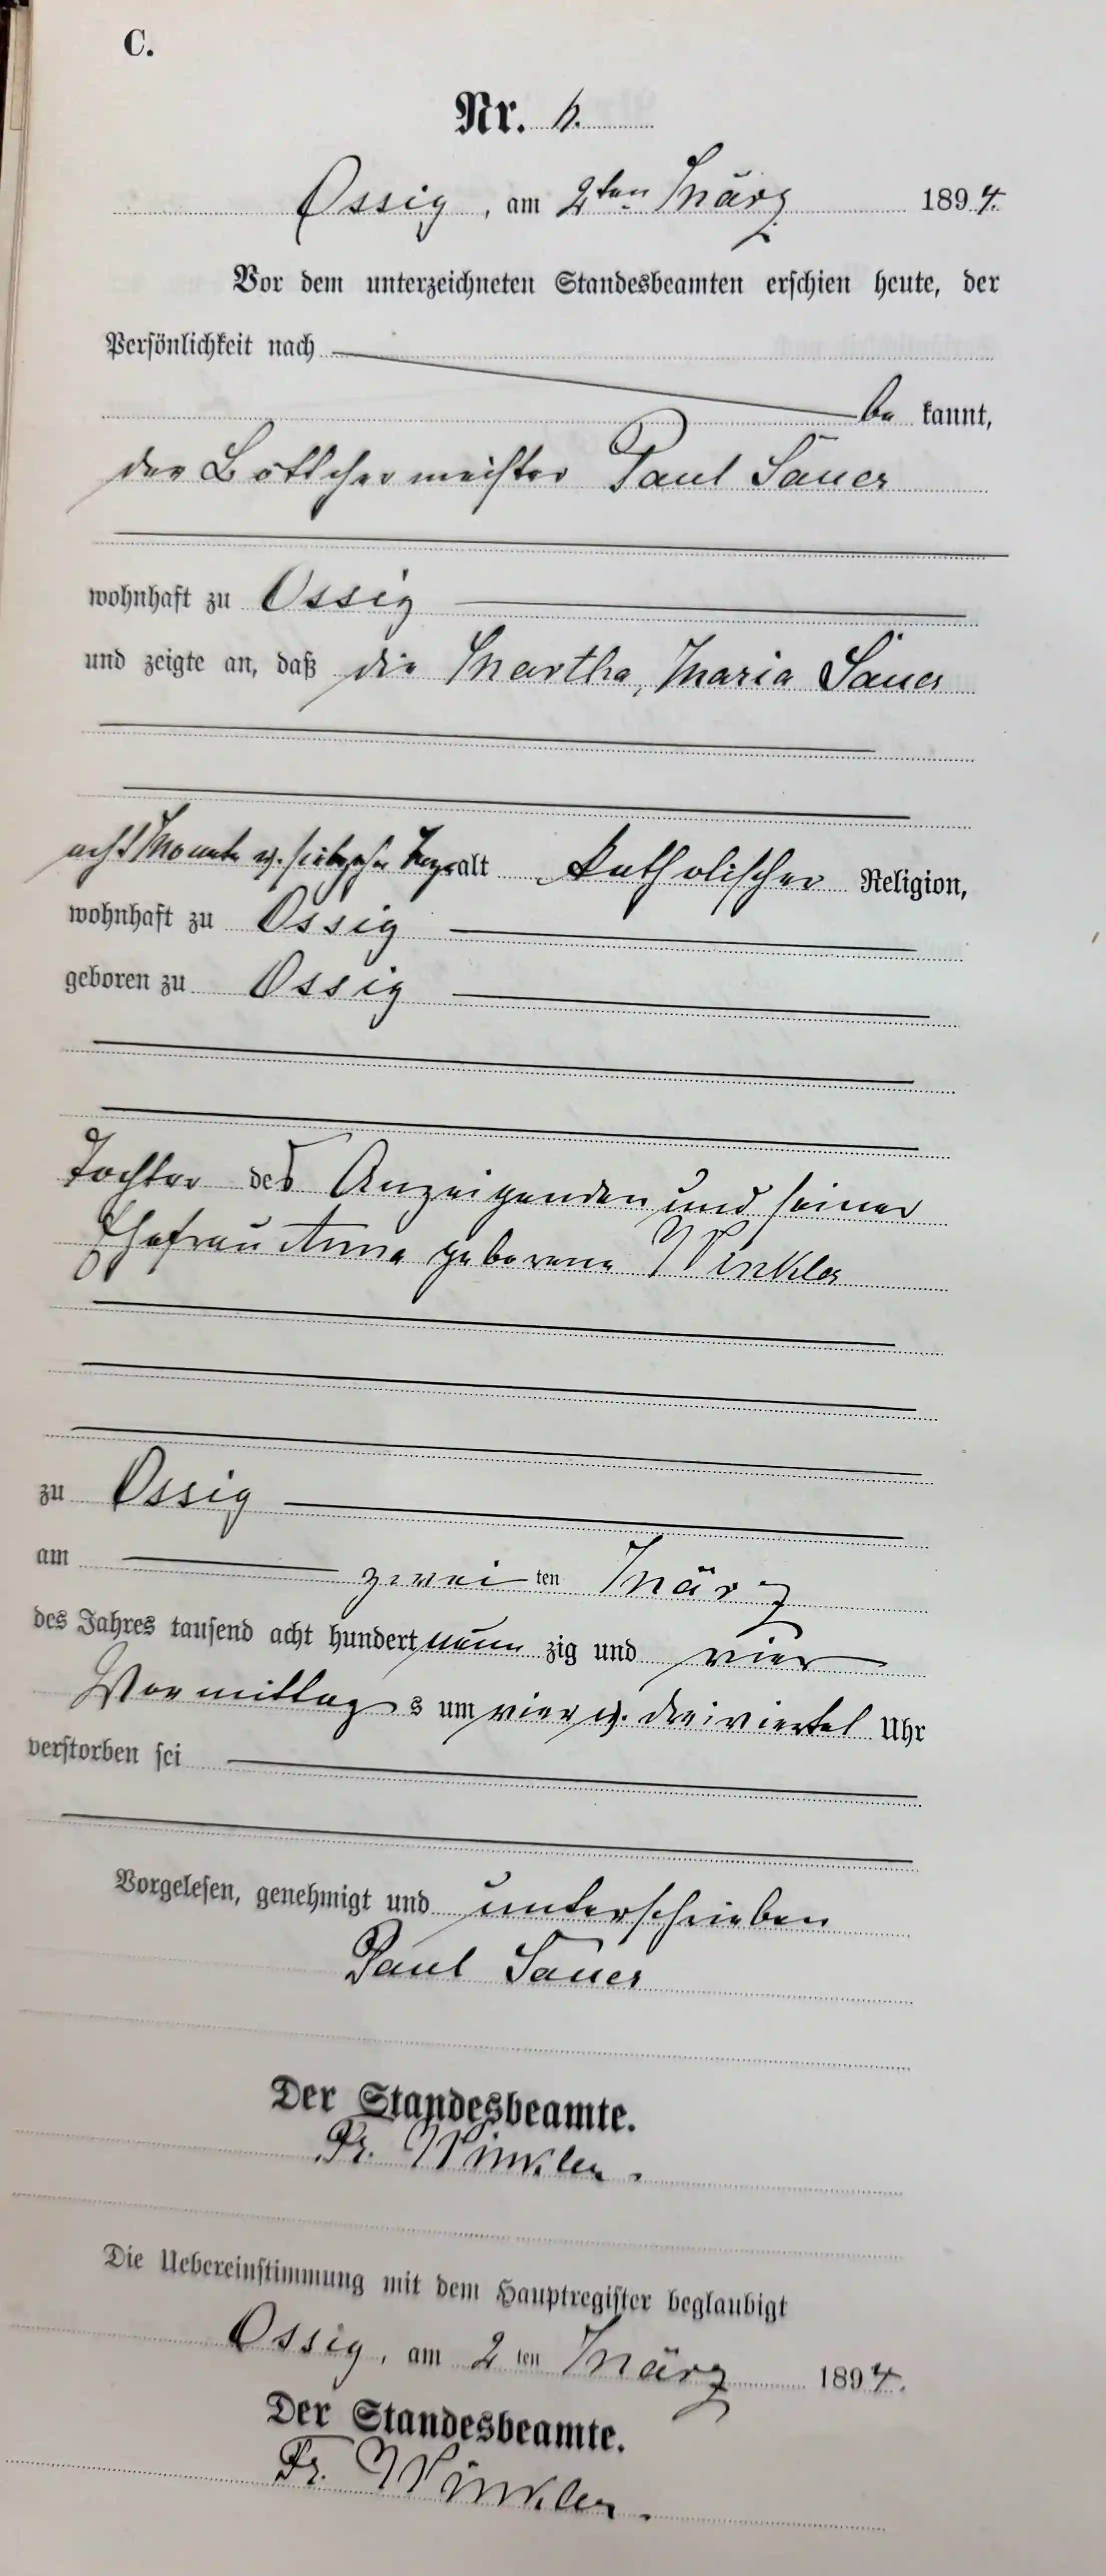 C.
Nr. 6.
Ossig, am 2ten März 1894.
Vor dem unterzeichneten Standesbeamten erschien heute, der
Persönlichkeit nach
be kannt,
der Böttchermeister Paul Sauer
wohnhaft zu Ossig
und zeigte an, daß die Martha, Maria Sauer
acht Monate u. siebzehn Tage alt katholischer Religion,
wohnhaft zu Ossig
geboren zu Ossig
Tochter des Anzeigenden und seiner
Ehefrau Anna geborene Winkler
zu Ossig
am zwei ten März
des Jahres tausend acht hundert neun zig und vier
Vormittag s um vier u. dreiviertel Uhr
verstorben sei
Vorgelesen, genehmigt und unterschrieben
Paul Sauer
Der Standesbeamte.
Fr. Winkler.
Die Uebereinstimmung mit dem Hauptregister beglaubigt
Ossig, am 2 ten März 1894.
Der Standesbeamte.
Fr. Winkler.